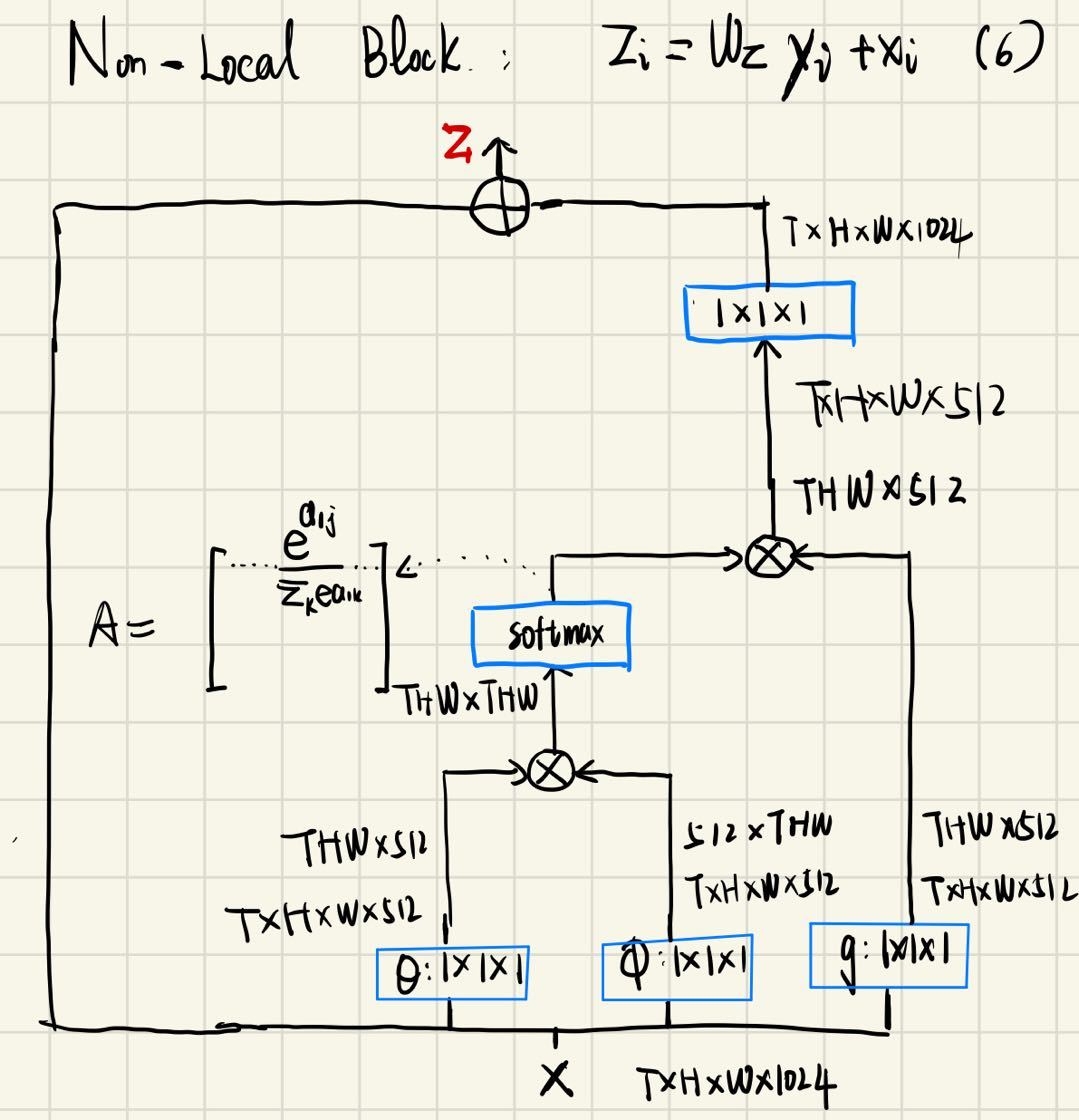 Non-Local Block: Zi = Wz yi + xi (6)
Z
T×H×W×1024
1×1×1
T×H×W×512
THW×512
A = [ ····· e^{aij} / Σk e^{aik} ··· ]
softmax
THW×THW
THW×512
512×THW
THW×512
T×H×W×512
T×H×W×512
T×H×W×512
θ: 1×1×1
Φ: 1×1×1
g: 1×1×1
X
T×H×W×1024